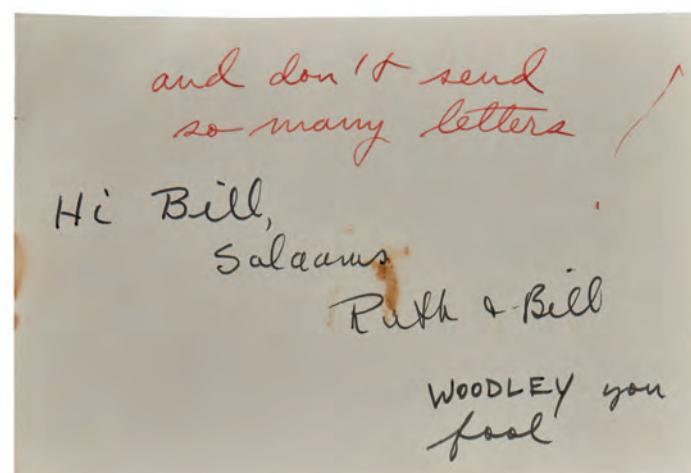 and don't send
so many letters
Hi Bill,
Salaams
Ruth & Bill
WOODLEY you
fool